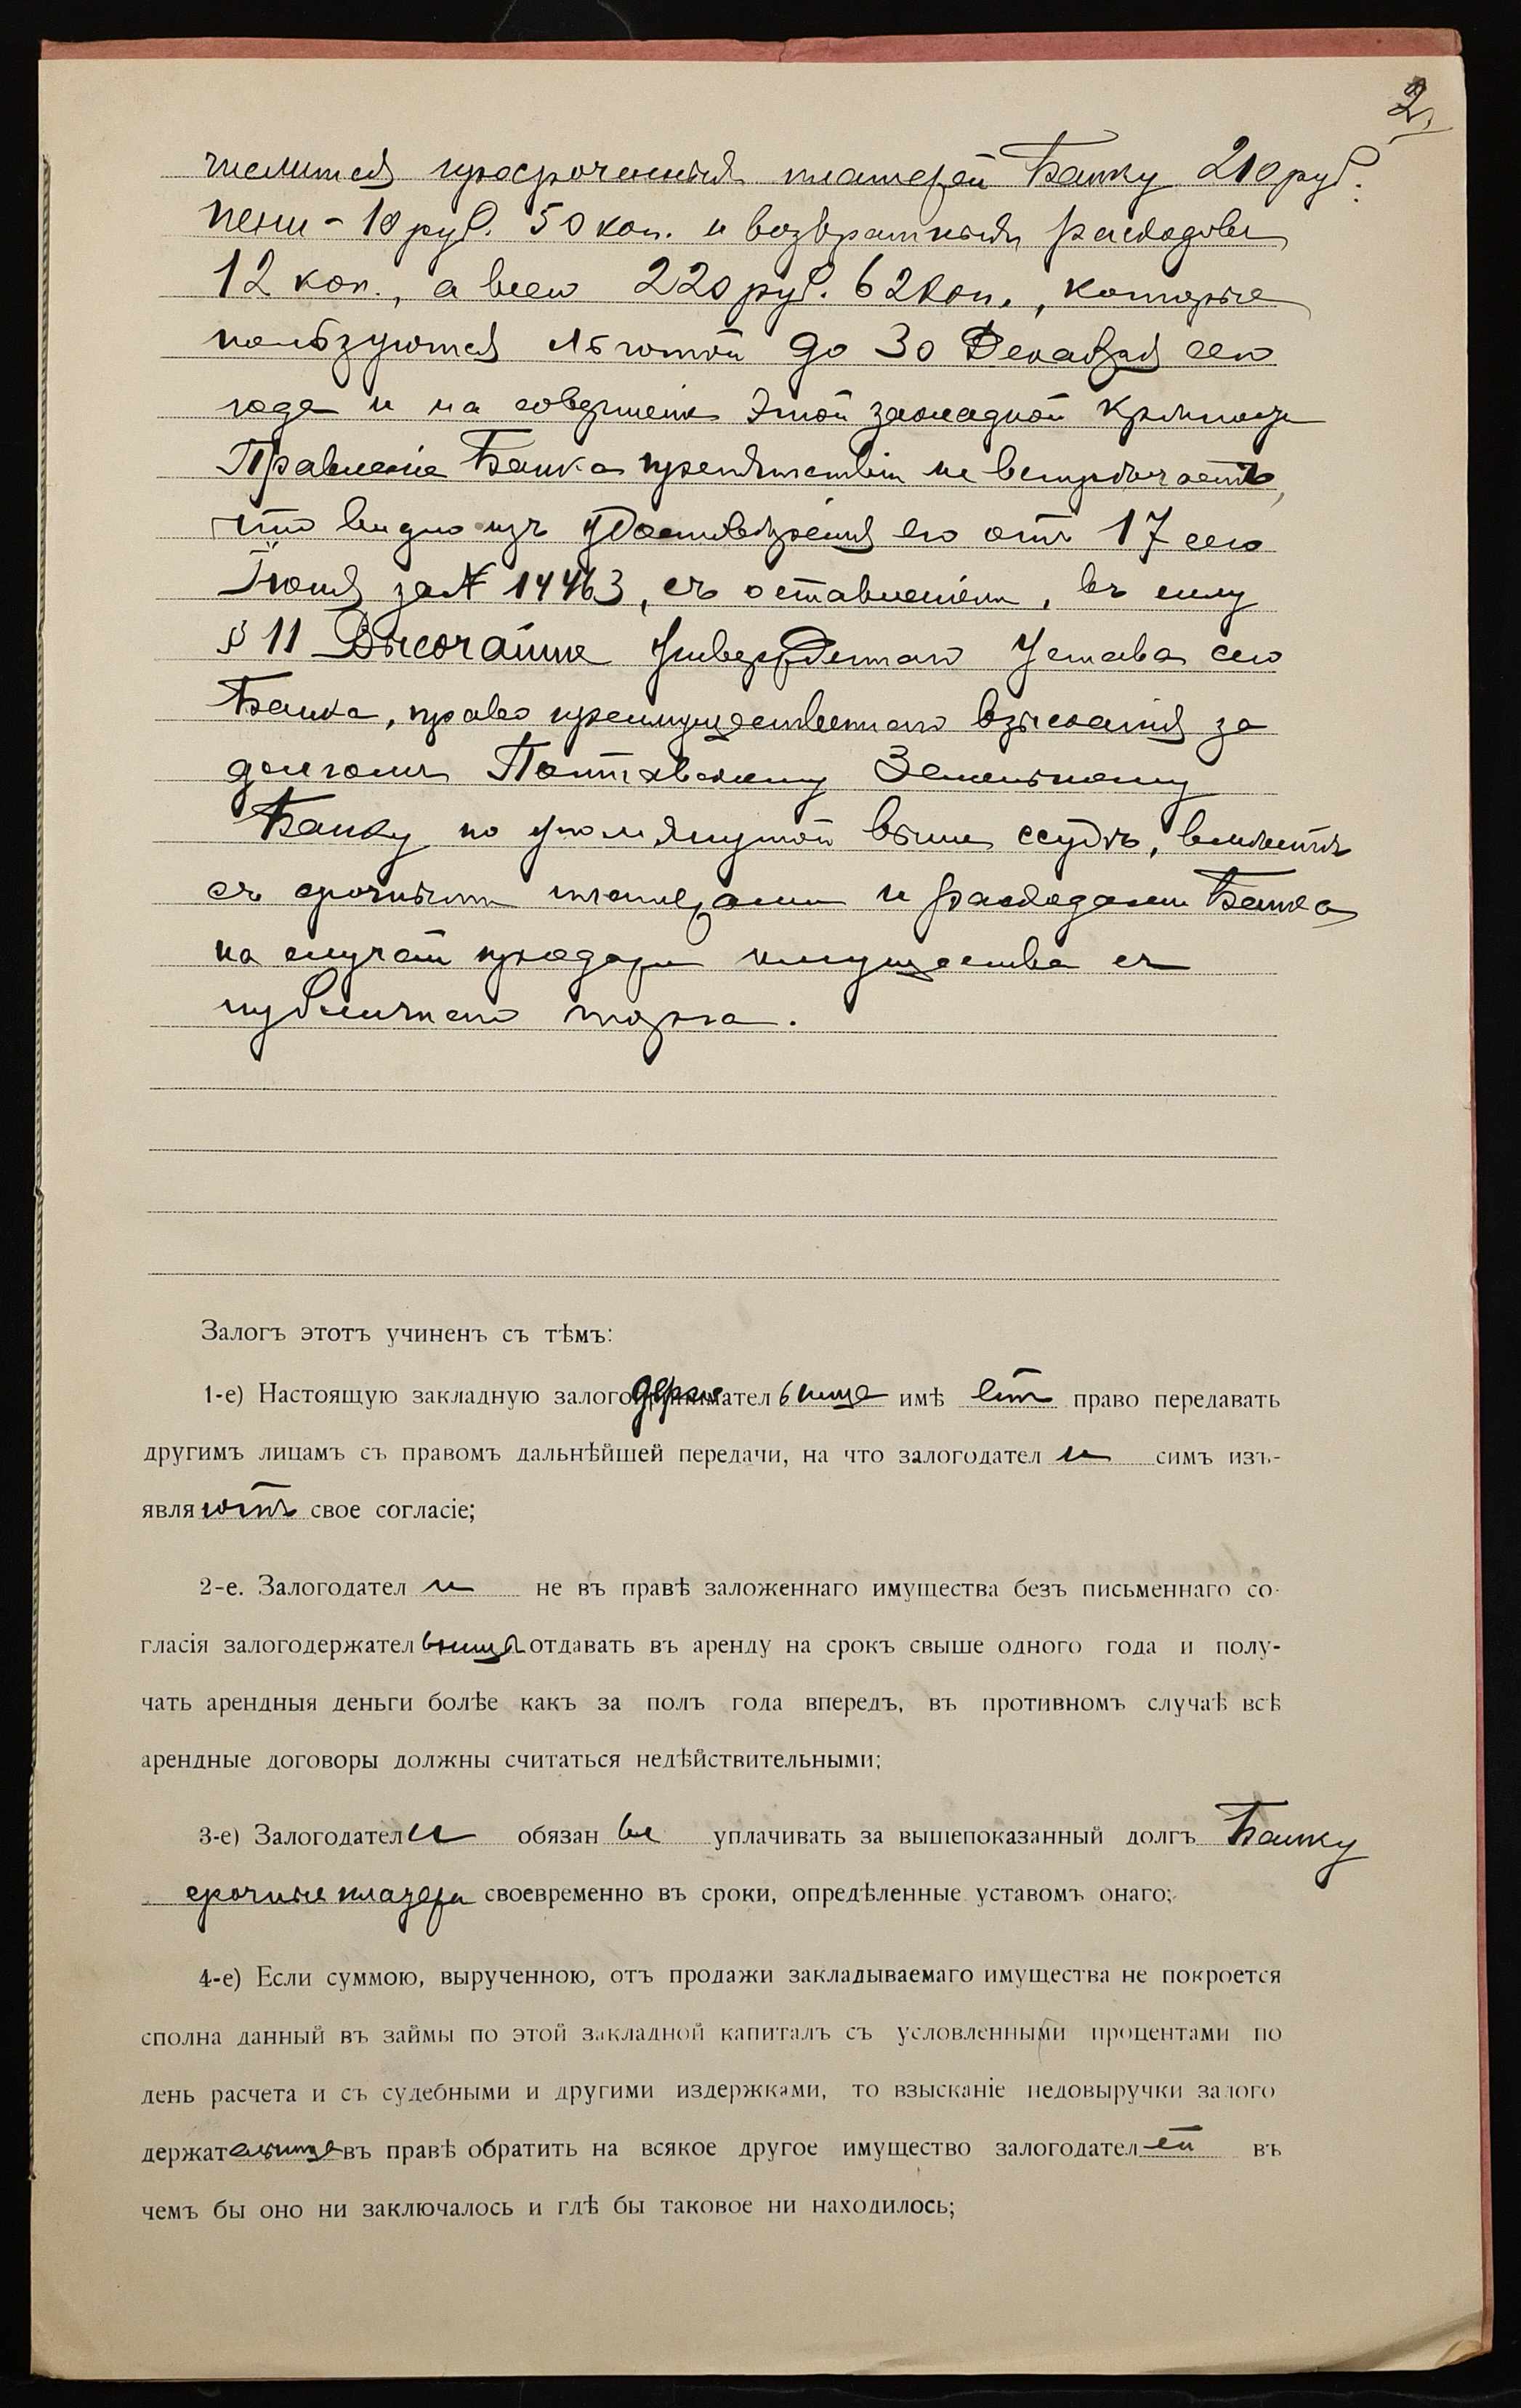 2
числится просроченныхъ платежей Банку 210 руб.
пени - 10 руб. 50 коп. и возвратныхъ расходовъ
12 коп., а всего 220 руб. 62 коп., которые
пользуются льготой до 30 Декабря сего
года и на совершеніе этой закладной крѣпости
Правленіе Банка препятствій не встрѣчаетъ,
что видно изъ удостовѣренія его отъ 17 сего
Іюня за № 14463, съ оставленіемъ, въ силу
§ 11 Высочайше утвержденнаго Устава сего
Банка, право преимущественнаго взысканія за
долгомъ Полтавскому Земельному
Банку по упомянутой выше ссудѣ, вмѣстѣ
съ срочными платежами и расходами Банка
на случай продажи имущества съ
публичнаго торга.
Залогъ этотъ учиненъ съ тѣмъ:
1-е) Настоящую закладную залогодержательница имѣетъ право передавать
другимъ лицамъ съ правомъ дальнѣйшей передачи, на что залогодатели симъ изъ-
являютъ свое согласіе;
2-е. Залогодатели не въ правѣ заложеннаго имущества безъ письменнаго со-
гласія залогодержательницы отдавать въ аренду на срокъ свыше одного года и полу-
чать арендныя деньги болѣе какъ за полъ года впередъ, въ противномъ случаѣ всѣ
арендные договоры должны считаться недѣйствительными;
3-е) Залогодатели обязаны уплачивать за вышепоказанный долгъ Банку
срочные платежи своевременно въ сроки, опредѣленные уставомъ онаго;
4-е) Если суммою, вырученною, отъ продажи закладываемаго имущества не покроется
сполна данный въ займы по этой закладной капиталъ съ условленными процентами по
день расчета и съ судебными и другими издержками, то взысканіе недовыручки залого
держательница въ правѣ обратить на всякое другое имущество залогодателей въ
чемъ бы оно ни заключалось и гдѣ бы таковое ни находилось;